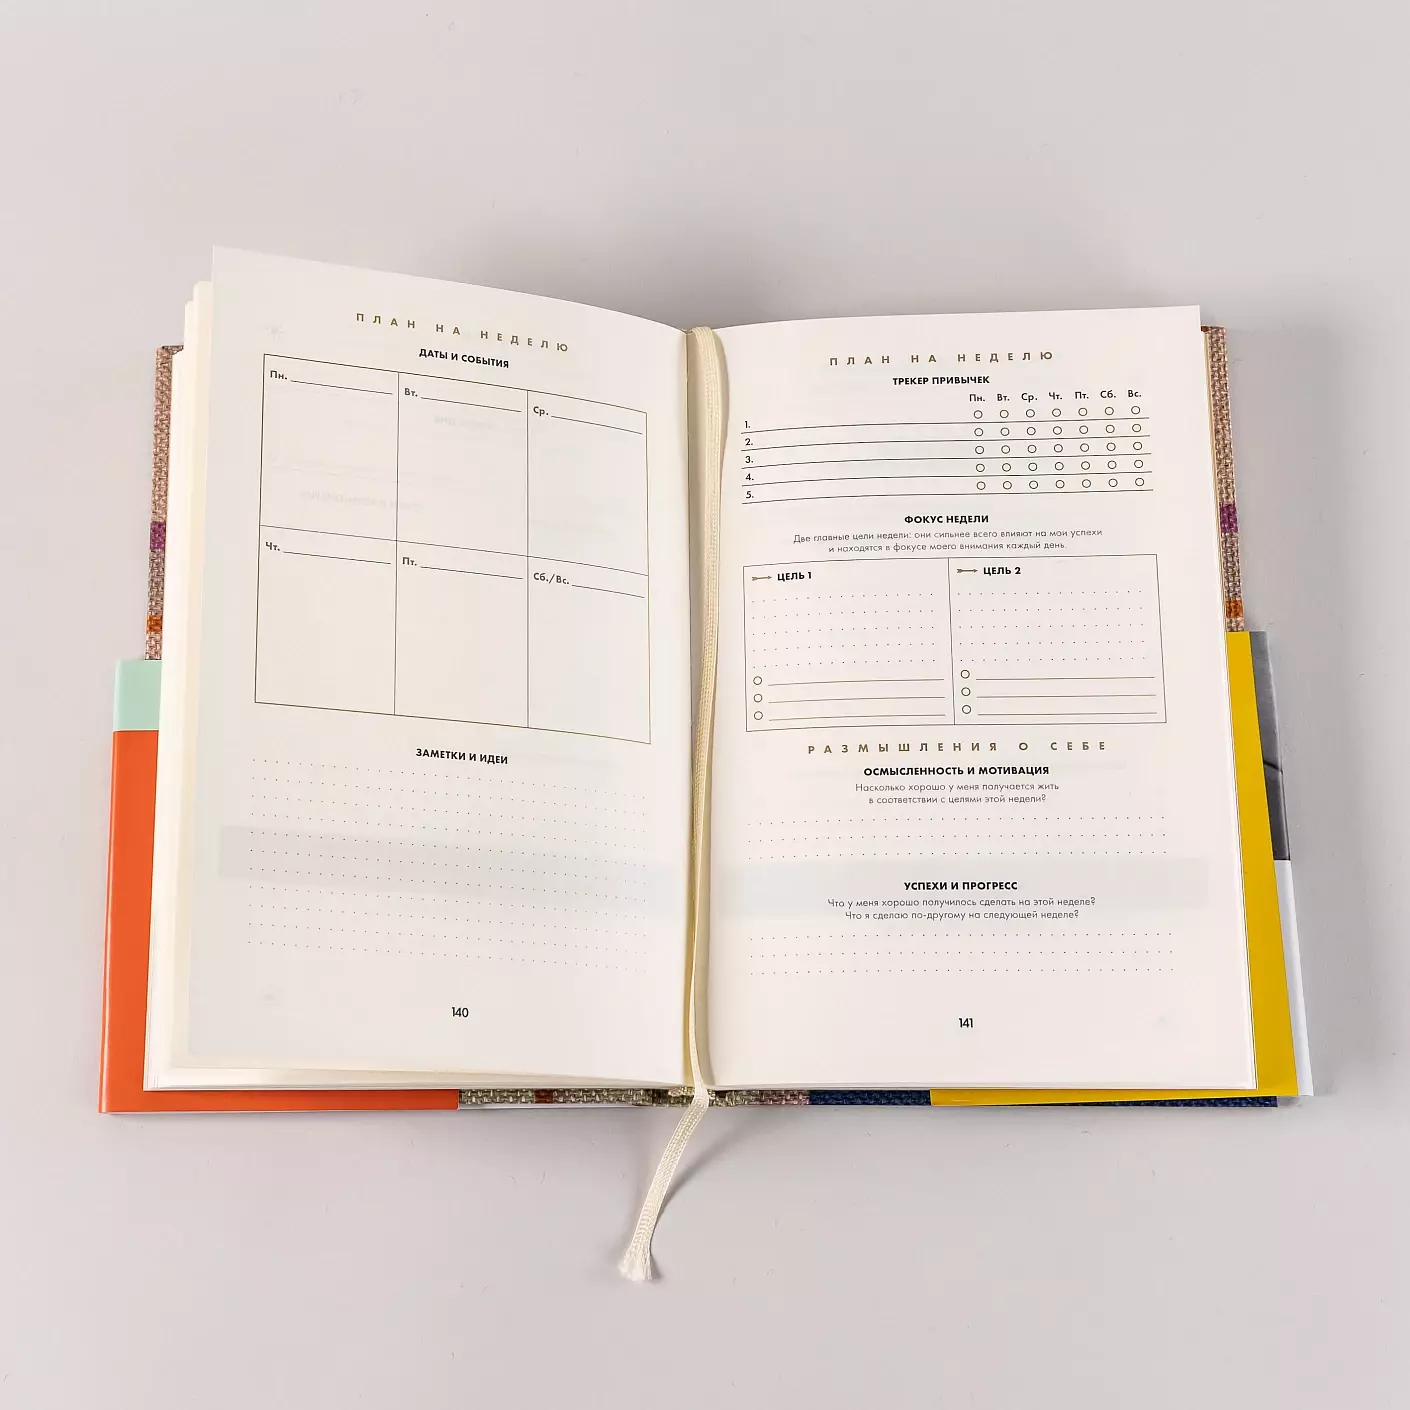 ПЛАН НА НЕДЕЛЮ
ДАТЫ И СОБЫТИЯ
Пн.
Вт.
Ср.
Чт.
Пт.
Сб./Вс.
ЗАМЕТКИ И ИДЕИ
140
ПЛАН НА НЕДЕЛЮ
ТРЕКЕР ПРИВЫЧЕК
Пн. Вт. Ср. Чт. Пт. Сб. Вс.
1.
2.
3.
4.
5.
ФОКУС НЕДЕЛИ
Две главные цели недели: они сильнее всего влияют на мои успехи
и находятся в фокусе моего внимания каждый день.
ЦЕЛЬ 1
ЦЕЛЬ 2
РАЗМЫШЛЕНИЯ О СЕБЕ
ОСМЫСЛЕННОСТЬ И МОТИВАЦИЯ
Насколько хорошо у меня получается жить
в соответствии с целями этой недели?
УСПЕХИ И ПРОГРЕСС
Что у меня хорошо получилось сделать на этой неделе?
Что я сделаю по-другому на следующей неделе?
141